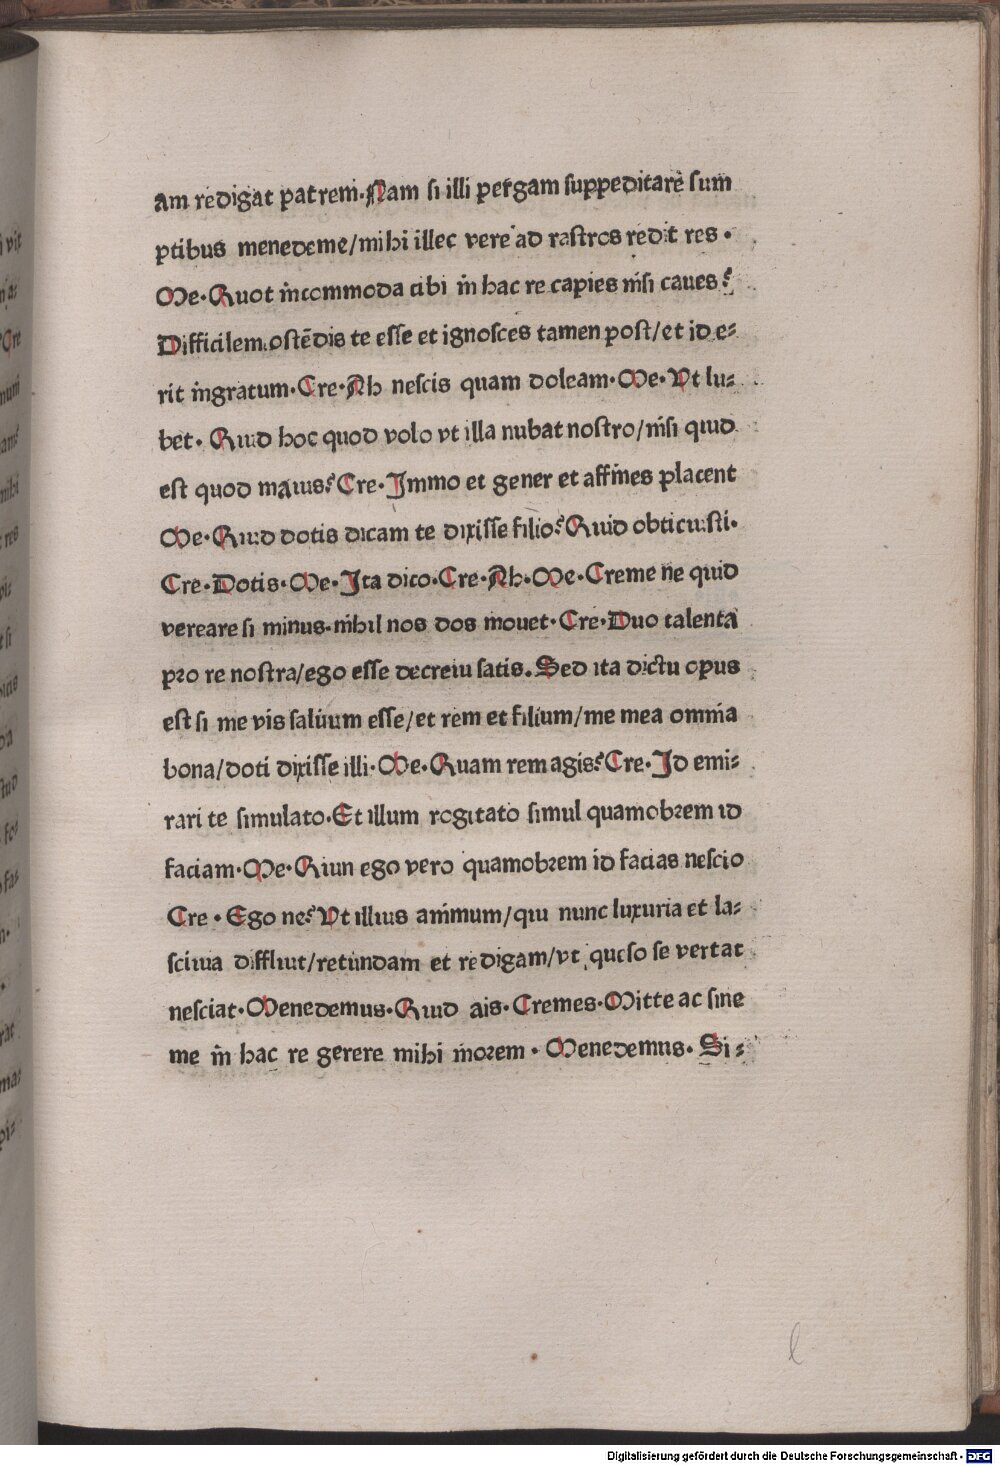 am redigat patrem·Nam si illi pergam suppeditare sum
ptibus menedeme/mihi illec vere ad rastros redit res·
Me·Quot incommoda tibi in hac re capies nisi caues?
Difficilem ostēdis te esse et ignosces tamen post/et id e⸗
rit ingratum·Cre·Ah nescis quam doleam·Me·Vt lu⸗
bet· Quid hoc quod volo vt illa nubat nostro/nisi quid
est quod maius?Cre·Immo et gener et affines placent
Me·Quid dotis dicam te dixisse filio?Quid obticuisti·
Cre·Dotis·Me·Ita dico·Cre·Ah·Me·Creme ne quid
vereare si minus·nihil nos dos mouet·Cre·Duo talenta
pro re nostra/ego esse decreiu satis·Sed ita dictu opus
est si me vis saluum esse/et rem et filium/me mea omnia
bona/doti dixisse illi·Me·Quam rem agis?Cre·Id emi⸗
rari te simulato·Et illum rogitato simul quamobrem id
faciam·Me·Quin ego vero quamobrem id facias nescio
Cre·Ego ne?Vt illius animum/qui nunc luxuria et la⸗
sciuia diffluit/retundam et redigam/vt queso se vertat
nesciat·Menedemus·Quid ais·Cremes·Mitte ac sine
me in hac re gerere mihi morem·Menedemus·Si⸗
l
Digitalisierung gefördert durch die Deutsche Forschungsgemeinschaft - DFG